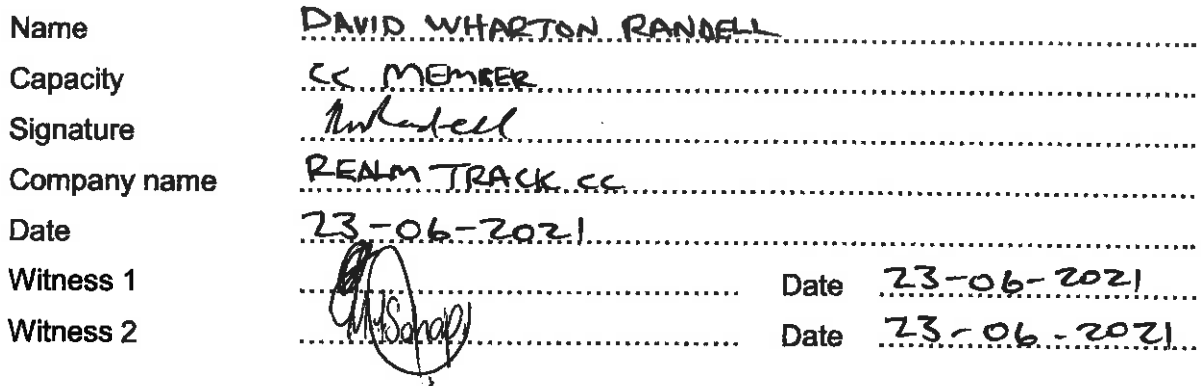 Name DAVID WHARTON RANDELL
Capacity CC MEMBER
Signature
Company name REALM TRACK CC
Date 23-06-2021
Witness 1 Date 23-06-2021
Witness 2 Date 23-06-2021